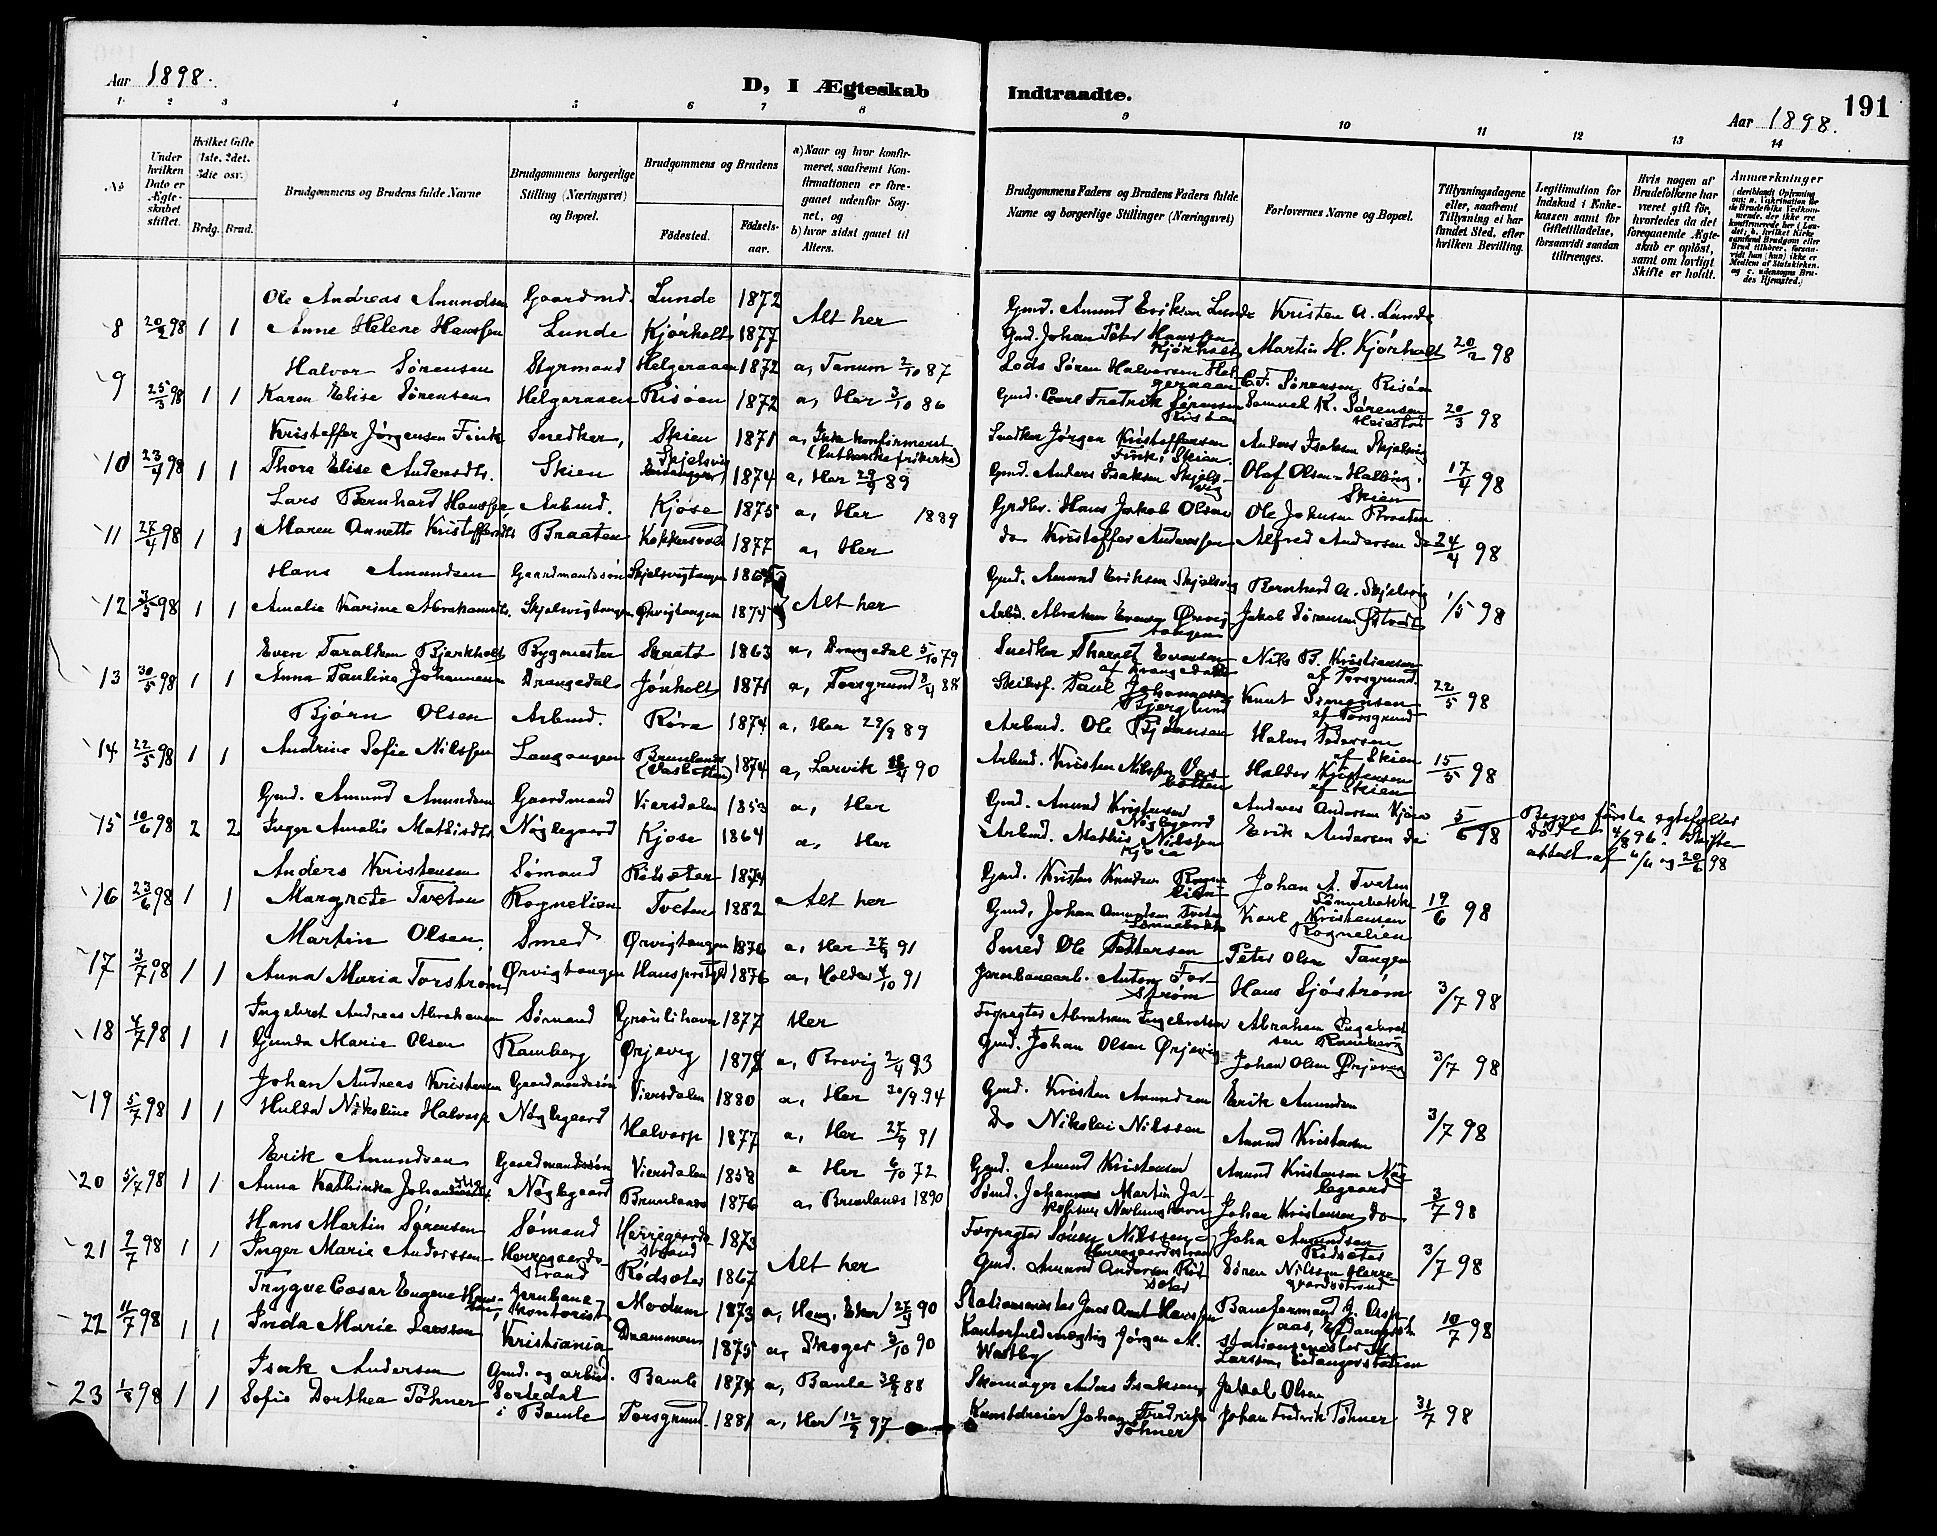 Aar 1898.
D, I Ægteskab Indtraadte.
Aar 1898.
191
1 2 3 4 5 6 7 8 9 10 11 12 13 14
№
Under hvilken Dato er Ægteskabet stiftet.
Hvilket Gifte (1ste, 2det, 3die osv.)
Brdg. Brud.
Brudgommens og Brudens fulde Navne
Brudgommens borgerlige Stilling (Næringsvei) og Bopæl.
Brudgommens og Brudens
Fødested. Fødsels-aar.
a) Naar og hvor konfirmeret, saafremt Konfirmationen er foregaaet udenfor Sognet, og
b) hvor sidst gaaet til Alters.
Brudgommens Faders og Brudens Faders fulde Navne og borgerlige Stillinger (Næringsvei)
Forlovernes Navne og Bopæl.
Tillysningsdagene eller, saafremt Tillysning ei har fundet Sted, efter hvilken Bevilling.
Legitimation for Indskud i Enkekassen samt for Giftetilladelse, forsaavidt saadan tiltrænges.
Hvis nogen af Brudefolkene har været gift før, hvorledes da det foregaaende Ægteskab er opløst, samt om lovligt Skifte er holdt.
Anmærkninger
Ole Andreas Amundsen Gaardmd. Lunde 1872 Alt her Gmd. Amund Eriksen Lunde Kristen A. Lunde
8 20/2 98 1 1 Anne Helene Hanssen Lunde Kjørholt 1877 Gmd. Johan Peter Hanssen Kjørholt Martin H. Kjørholt 20/2 98
Halvor Sørensen Styrmand Helgeraaen 1872 a, Tanum 2/10 87 Lods Søren Halvorsen Helgeraaen C.F. Sørensen, Risøen
9 25/3 98 1 1 Karen Elise Sørensen Helgeraaen Risøen 1872 a, Her 3/10 86 Gmd. Carl Fredrik Sørensen Risøen Samuel K. Sørensen Heistad 20/3 98
Kristoffer Jørgensen Fink Snedker, Skien 1871 a, Ikke konfirmeret (lutherske frikirke) Snedker Jørgen Kristoffersen Fink i Skien. Anders Isaksen Skjelsvig
10 23/4 98 1 1 Thora Elise Andersdtr. Skien Skjelsvig Eidanger 1874 a, Her 29/9 89 Gmd. Anders Isaksen Skjelsvig Olaf Olsen Halling, Skien 17/4 98
Lars Bernhard Hanssen Arbmd. Kjøse 1875 a, Her 1889 Grdbr. Hans Jakob Olsen Ole Johnsen Braaten
11 27/4 98 1 1 Maren Annette Kristoffersdtr Braaten Kokkersvold 1877 a, Her do Kristoffer Anderssen Alfred Andersen do 24/4 98
Hans Amundsen Gaardmandssøn Skjelsvigtangen Alt her Gmd. Amund Eriksen Skjelsvig Bernhard A. Skjelsvig
12 3/5 98 1 1 Amalie Karine Abrahamsdtr. Skjelsvigtangen Ørvigtangen 1875 Arbd. Abraham Evensen Ørvigtangen Jakob Sørensen Østvedt 1/5 98
Even Taraldsen Bjerkholt Bygmester 1863 a, Drangedal 5/10 79 Snedker Tharalt Evensen af Drangedal Nils B. Kristiansen af Porsgrund.
13 30/5 98 1 1 Anna Pauline Johannessen Drangedal Jønholt 1871 a, Porsgrund 8/4 88 Skibsf. Paul Johannessen Bjerglund Knut Simonsen af Porsgrund 22/5 98
Bjørn Olsen Arbmd. Røra 1874 a, Her 29/9 89 Arbmd. Ole Bjørnsen Halvor Pedersen af Skien
14 22/5 98 1 1 Andrine Sofie Nilssen Langangen Brunlanes (Vasbotten) 1874 a, Larvik 90 Arbmd. Kristen Nilssen Vasbotten Haldor Kristensen af Skien 15/5 98
Gmd. Amund Amundsen Gaardmand Viersdalen 1853 a, Her Gmd. Amund Kristensen Nøglegaard Anders Andersen Kjøse
15 10/6 98 2 2 Inger Amalie Mathisdtr Nøglegaard Kjose 1864 a, Her Arbmd. Mathis Nilssen Kjøse Erik Andersen do 5/6 98 Begges første egtefæller døde 4/8 96. Skifteattest af 4/4 og 20/6 98
Anders Kristensen Sømand Rødsæter 1874 Gmd. Kristen Knudsen Rognelien Johan A. Tveten Sønnebakke
16 23/6 98 1 1 Margrete Tveten Rognelien Tveten 1882 Alt her Gmd. Johan Amundsen Tveten Sønnebakke Karl Kristensen Rognelien 19/6 98
Martin Olsen. Smed Ørvigtangen 1876 a, Her 27/9 91 Smed Ole Pettersen Peter Olsen Tangen
17 3/7 98 1 1 Anna Maria Forstrøm Ørvigtangen 1876 a, Holden 4/10 91 Jernbanearb. Anton Forstrøm Hans Sjøstrøm 3/7 98
Ingebret Andreas Abrahamsen Sømand Grønlihavn 1877 Her Forpagter Abraham Ingebretsen Abraham Ingebretsen Ramberg
18 4/7 98 1 1 Gunda Marie Olsen Ramberg Ørjevig 1878 a, Brevig 2/4 93 Gmd. Johan Olsen Ørjevig Johan Olsen Ørjevig 3/7 98
Johan Andreas Kristensen Gaardmandssøn Viersdalen 1880 a, Her 30/9.94 Gmd. Kristen Amundsen Erik Amundsen
19 5/7 98 1 1 Hulda Nikoline Halvarp Nøglegaard Halvarp 1877 a, Her 27/9 91 Do Nikolai Nilssen Amund Kristensen 3/7 98
Erik Amundsen Gaardmandssøn Viersdalen 1858 a Her 6/10 72 Gmd. Amund Kristensen Amund Kristensen Nøglegaard
20 5/7 98 1 1 Anna Kathinka Nøglegaard Brunlanes 1876 a, Brunlanes 1890 Sømd. Johannes Martin Jakobsen Nevlunghavn Johan Kristensen do 3/7 98
Hans Martin Sørensen Sømand Herregaardsstrand 1873 Forpagter Søren Nilssen Herregaardsstrand John Amundsen Rødsæter
21 7/7 98 1 1 Inger Marie Anderssen Herregaardsstrand Rødsæter 1867 Alt her Gmd. Amund Andersen Rødsæter Søren Nilssen Herregaardsstrand 3/7 98
Trygve Cæsar Eugene Hanssen, Jernbanekontorist Modum 1873 a, Haug, Eker 90 Stationsmester Jens Arnt Hanssen Baneformand A. Aspaas, Eidanger st
22 11/7 98 1 1 Inda Marie Larssen Kristiania Drammen 1875 a, Skoger 5/10 90 Kontorfuldmægtig Jørgen M. Wastby stationsmester M. Larssen, Eidangerstation 10/7 98
Isak Andersen Gmd. og arbd. Bamle 1874 a, Bamle 88 Skomager Anders Isaksen Jakob Olsen
23 1/8 98 1 1 Sofie Dorthea Töhner Sortedal i Bamle Porsgrund 1881 a, Her 12/9 97 Kunstdreier Johan Fredrich Töhner Johan Fredrik Töhner 31/7 98